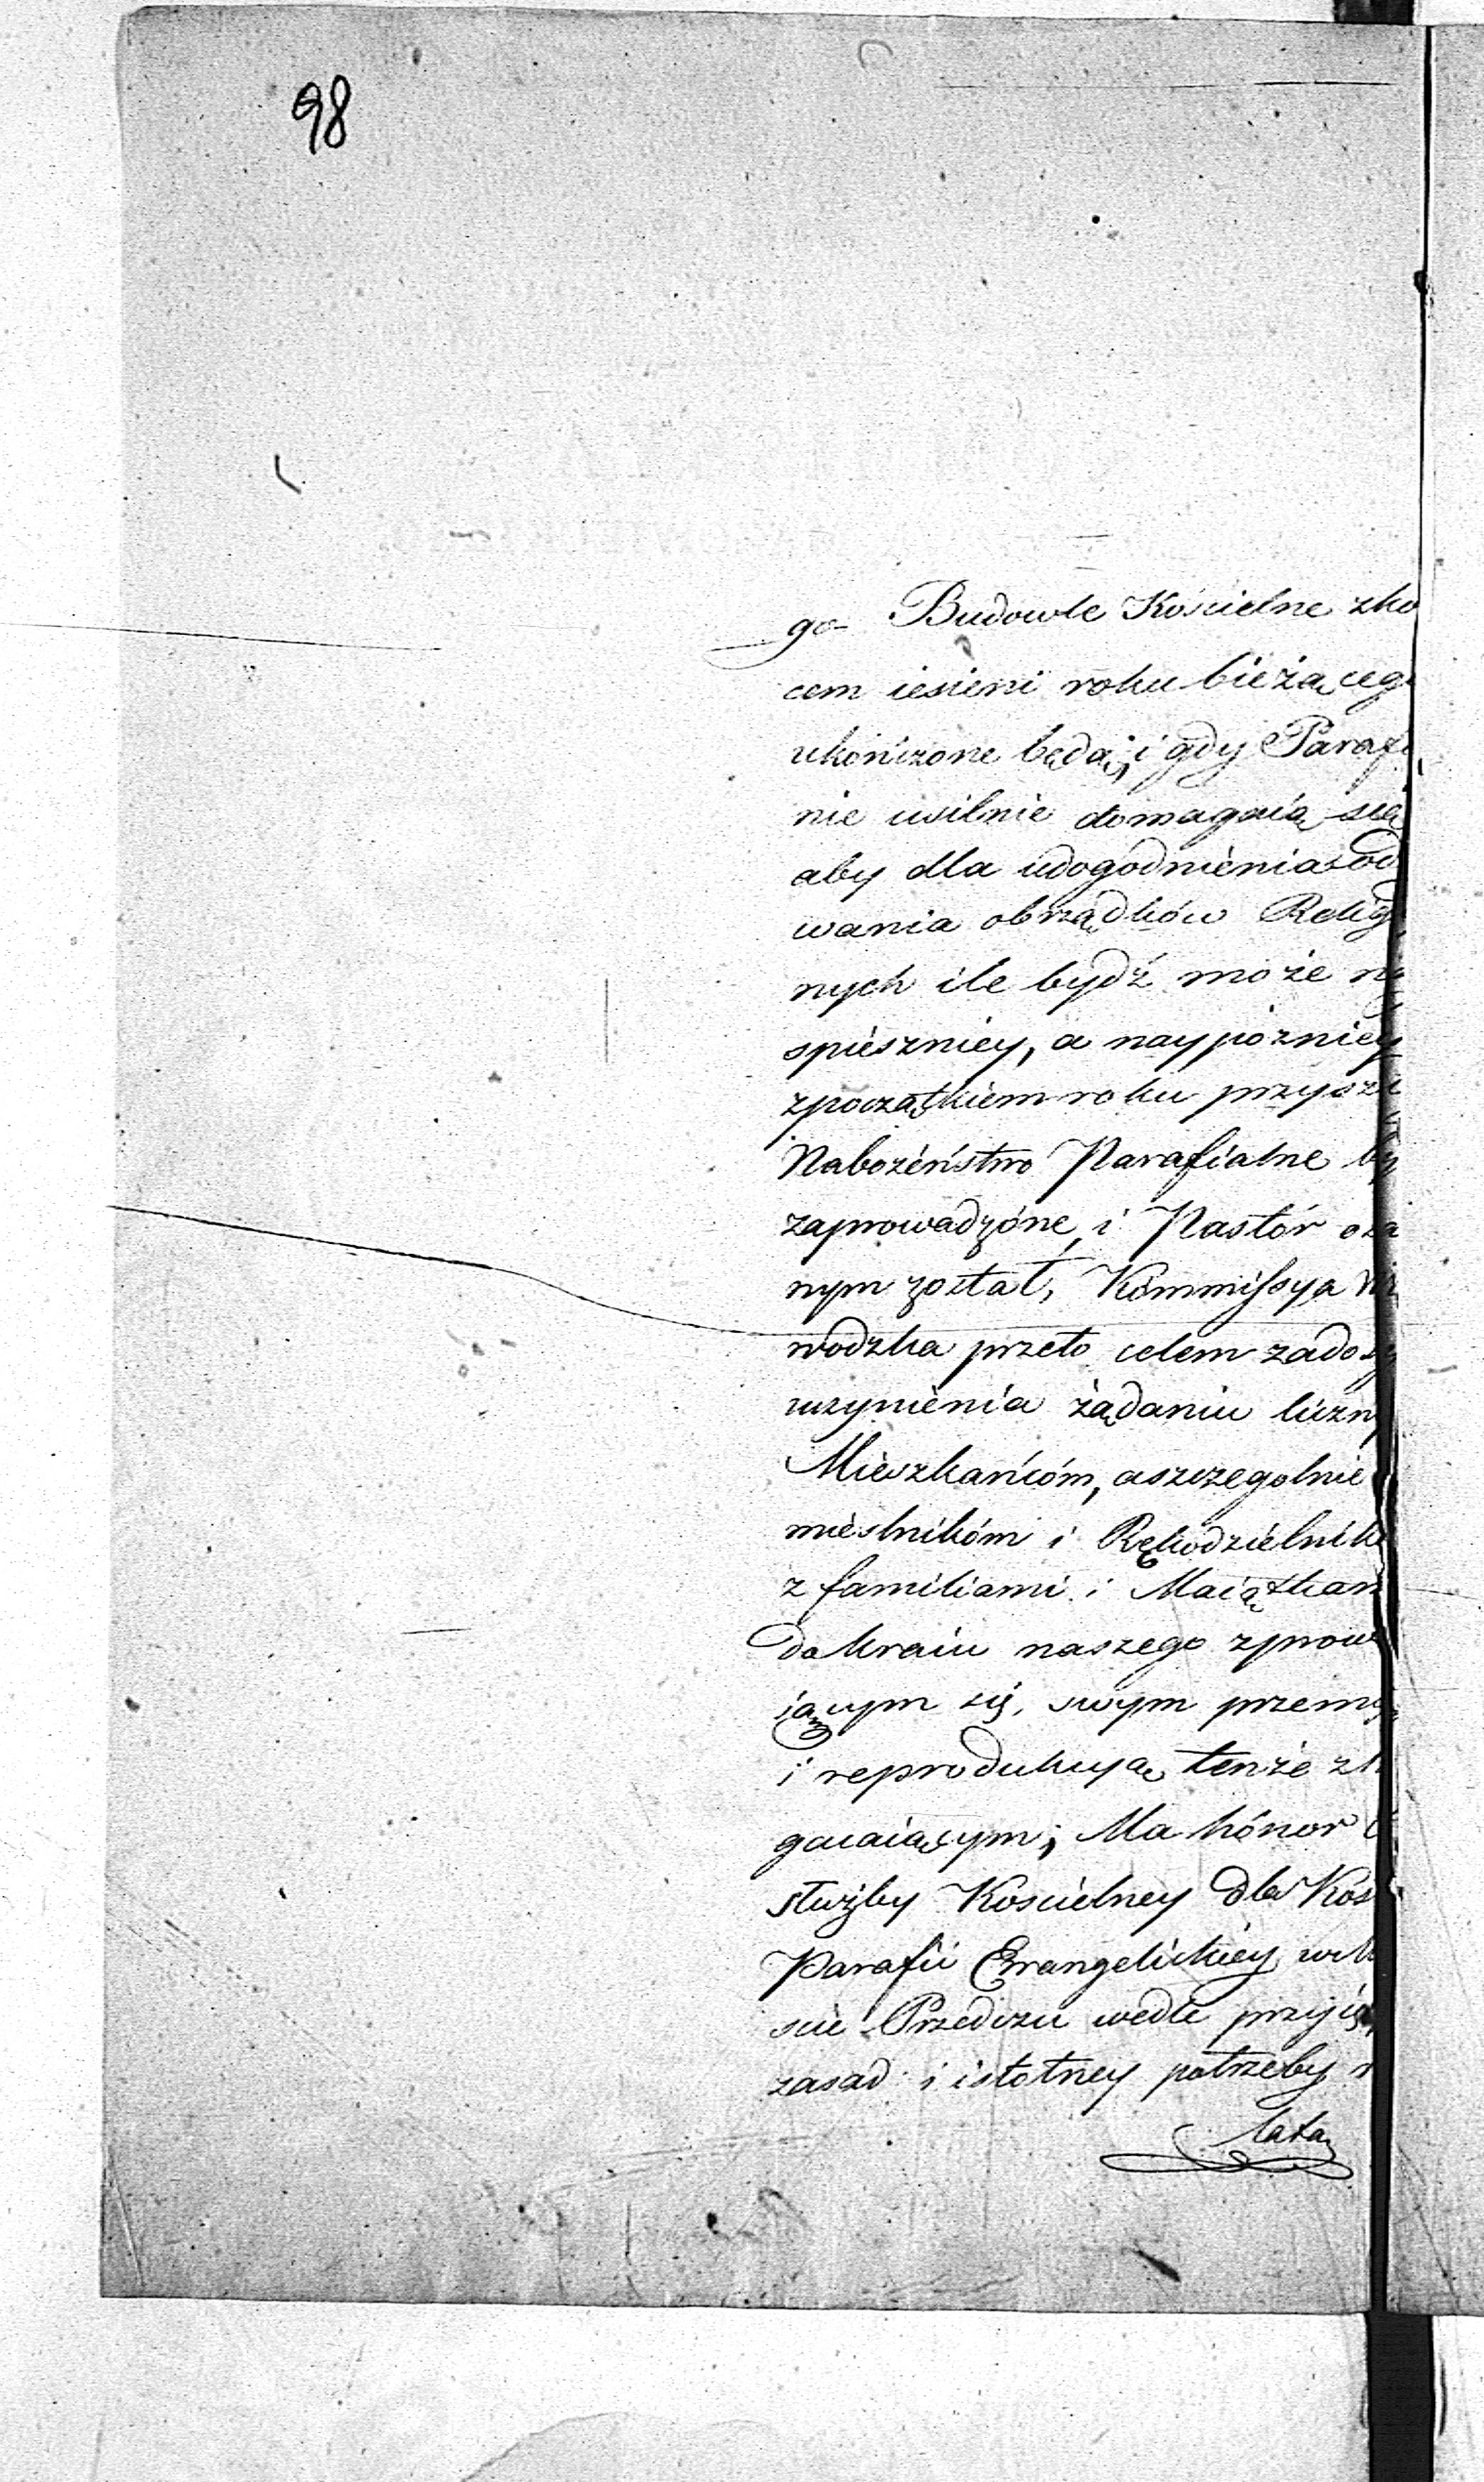 98
go Budowle Kościelne zko
cem iesieni roku bieżąceg
ukończone będą; i gdy Parafi
nie usilnie domagaią się
aby dla udogodnienia od
wania obrządków Relig
nych ile bydź może na
spieszniey, a naypóźniey
zpoczątkiem roku przyszł
Nabożeństwo Parafialne by
zaprowadzóne, i Pastór oza
nym został, Kommissya W
wodzka przeto celem zadosy
uczynienia żądaniu liczn
Mieszkańcóm, aszczegolnie
mieślnikóm i Rękodzielnik
z familiami i Maiątkam
do kraiu naszego zprowa
iącym się, swym przemy
i reprodukcyą tenże zb
gacaiącym; Ma hónor
służby Kościelney dla Kos
Parafii Ewangelickiey w M
scie Przedczu wedle przyię
zasad i istotney potrzeby